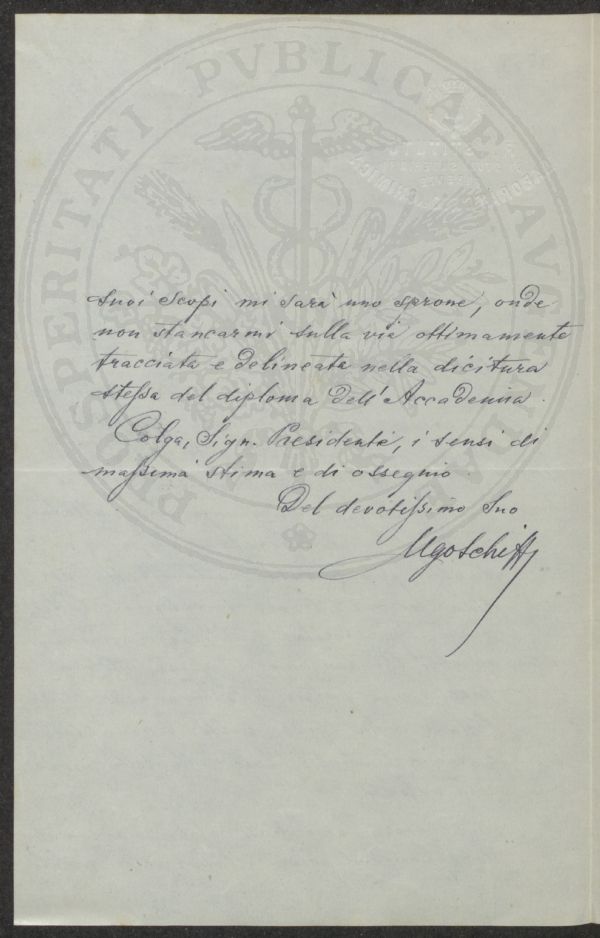 PROSPERITATI PVBLICAE AVGENDAE
suoi scopi mi sarà uno sprone, onde
non stancarmi sulla via ottimamente
tracciata e delineata nella dicitura
stessa del diploma dell'Accademia.
Colga, Sign. Presidente, i sensi di
massima stima e di ossequio.
Del devotissimo Suo
Ugo Schiff